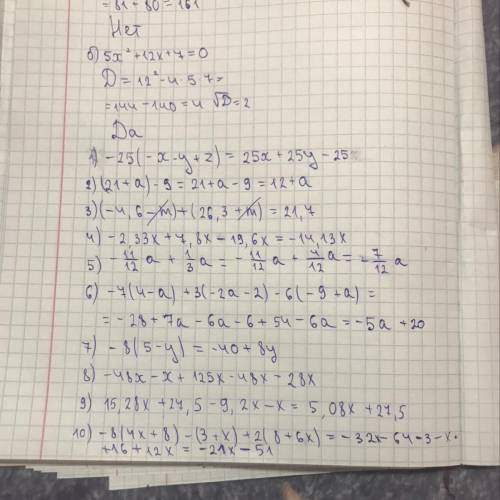 = 81 + 80 = 161
Нет
б) 5x² + 12x + 7 = 0
D = 12² - 4 · 5 · 7 =
= 144 - 140 = 4 √D = 2
Да
1) -25(-x - y + z) = 25x + 25y - 25
2) (21 + a) - 9 = 21 + a - 9 = 12 + a
3) (-4,6 - m) + (26,3 + m) = 21,7
4) -2,33x + 7,8x - 19,6x = -14,13x
5) -11/12 a + 1/3 a = -11/12 a + 4/12 a = -7/12 a
6) -7(4 - a) + 3(-2a - 2) - 6(-9 + a) =
= -28 + 7a - 6a - 6 + 54 - 6a = -5a + 20
7) -8(5 - y) = -40 + 8y
8) -48x - x + 125x - 48x = 28x
9) 15,28x + 27,5 - 9,2x - x = 5,08x + 27,5
10) -8(4x + 8) - (3 + x) + 2(8 + 6x) = -32x - 64 - 3 - x +
+ 16 + 12x = -21x - 51